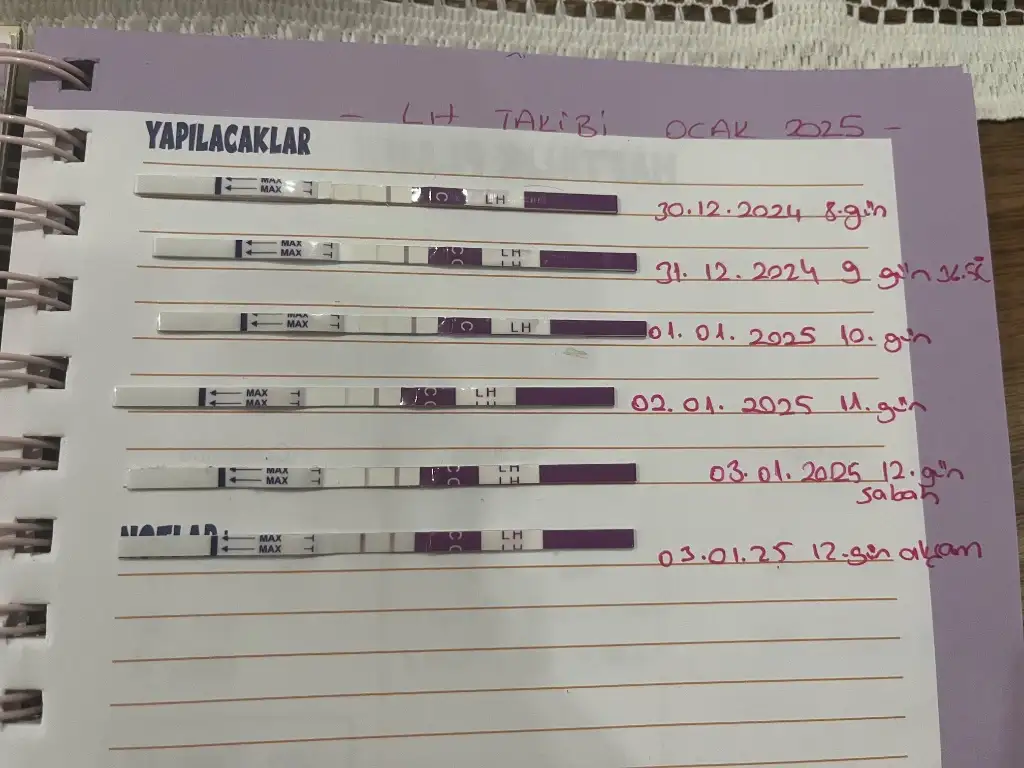 - LH TAKİBİ OCAK 2025 -
YAPILACAKLAR
MAX
MAX T T C LH 30.12.2024 8.gün
MAX
MAX T T C C LH 31.12.2024 9 gün
MAX
MAX T T C LH 01.01.2025 10.gün
MAX
MAX T T C C LH 02.01.2025 11.gün
MAX
MAX T T C C LH 03.01.2025 12.gün
sabah
NOTLAR
MAX
MAX T T C C LH 03.01.25 12.gün akşam